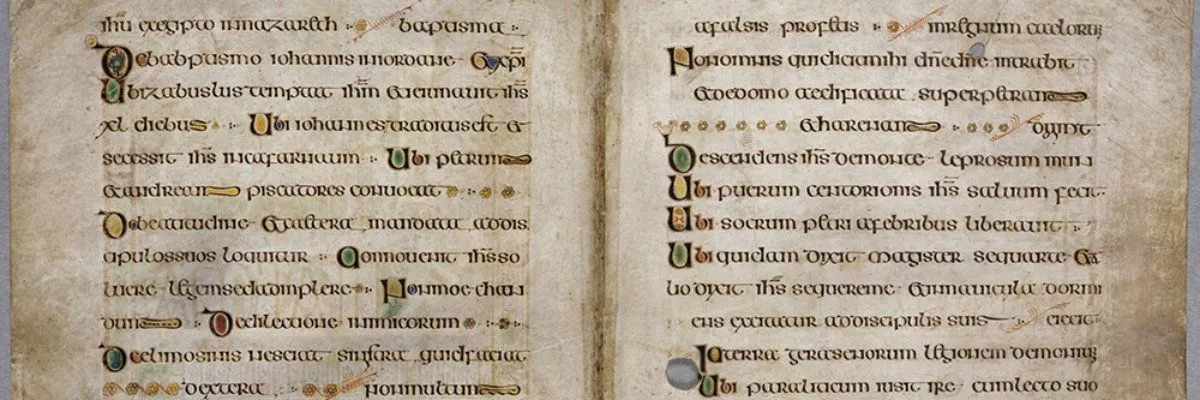 ihu exegipto innazareth baptisma
De baptismo iohannis iniordane Et xpi
Ubi zabulus temptat ihm Et ieiunauit ihs
xl diebus Ubi iohannes traditus est et
secessit ihs incafarnaum Ubi petrum
Et andream piscatores conuocat
De beatitudine Et altera mandata addis
cipulos suos loquitur Qonnouenit ihs so
luere legem sed adimplere Non moechan
dum De dilectione inimicorum
De elimosinis nesciat sinistra quid faciat
dextera non multum
afalsis profetis inregnum caelorum
Non omnis qui dicit mihi dne dne intrabit
Et dedomo aedificata super petram
Et harenam dixit
Descendens ihs demonte leprosum mun
Ubi puerum centorionis ihs saluum fecit
Ubi socrum petri afebribus liberauit
Ubi quidam dixit magister sequar te Et a
lio dixit ihs sequere me Et in nauicula dormi
ens excitatur addiscipulis suis eiecit
In terra gerasenorum legionem demoniu
Ubi paraliticum iusit ire cum lecto suo